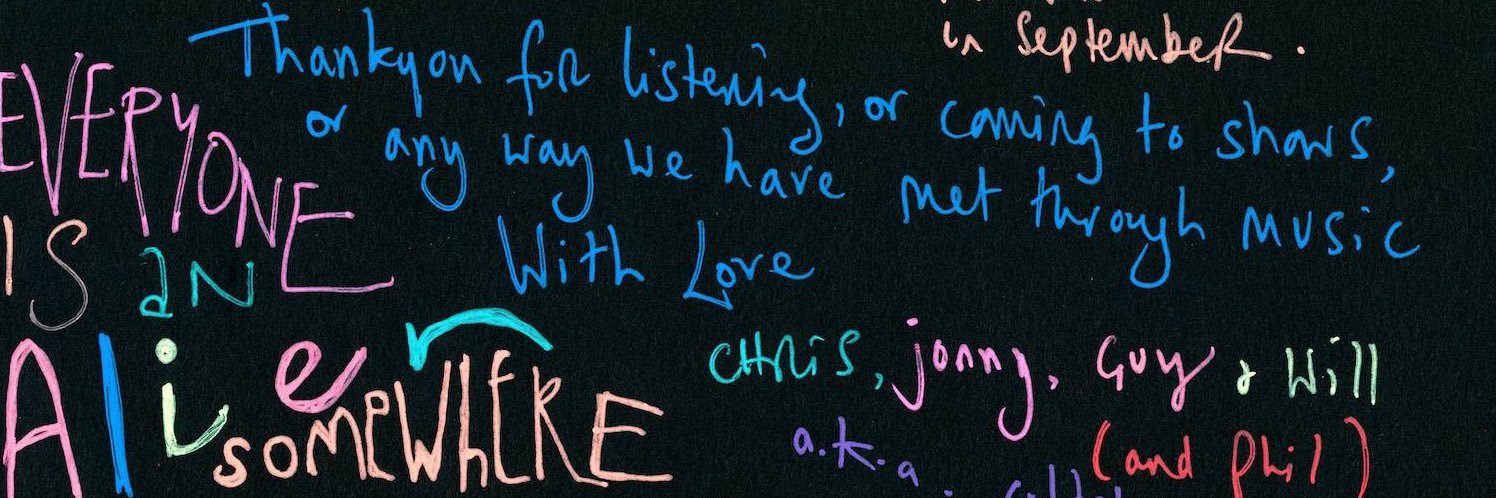 in September.
Thankyou for listening, or coming to shows,
or any way we have met through MUSic
With Love
EVERYONE
IS aN
Alie
SOMEWHERE
CHRiS, jonny, Guy & Will
a.k.a
(and phil)